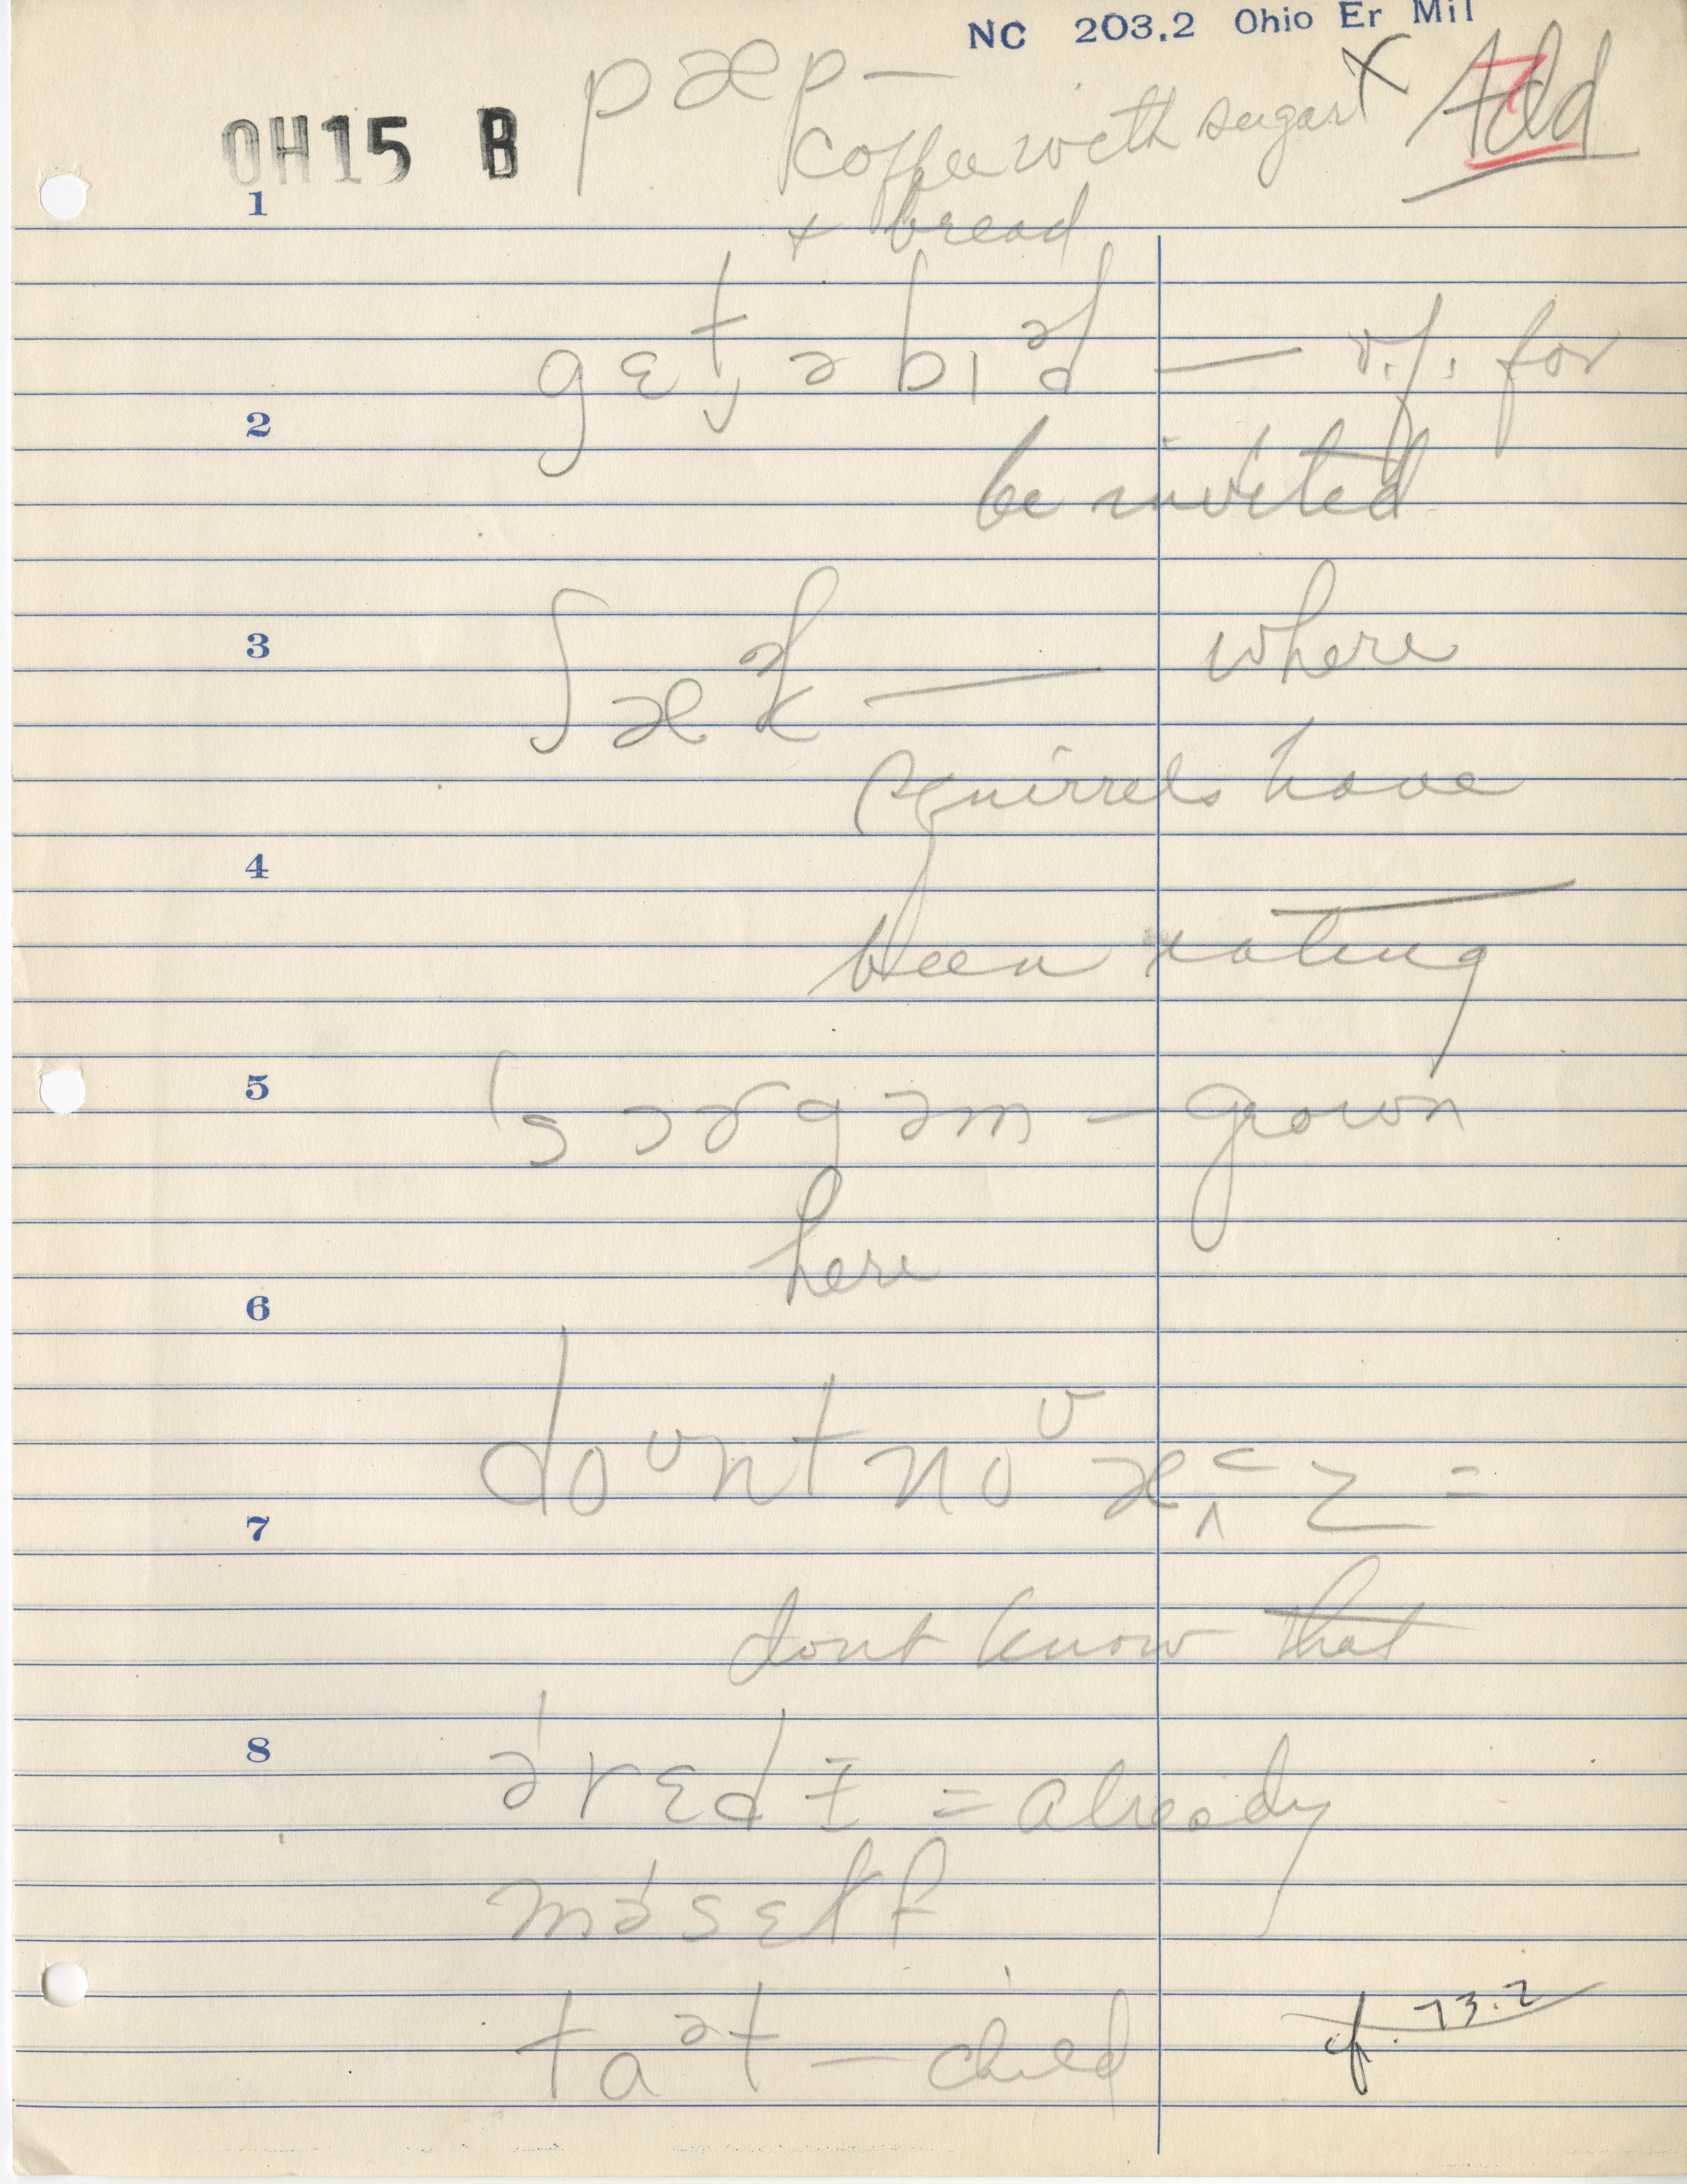 NC 203.2 Ohio Er Mil
OH15 B pæp — X Add 7
coffee with sugar
1
+ bread
gɛt̬ ə bɪᵊd — v.f. for
2
be invited
3 ʃæᵊk — where
squirrels have
4
been eating
5 sɔɚgəm — grown
here
6
doᴜnt noᴜ æ z =
7
dont know that
8 ə'rɛdɪ = already
mə'sɛlf
taᵊt — child cf. 73.2